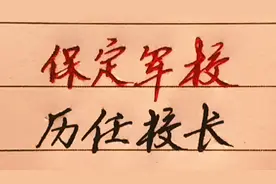 保定军校
历任校长